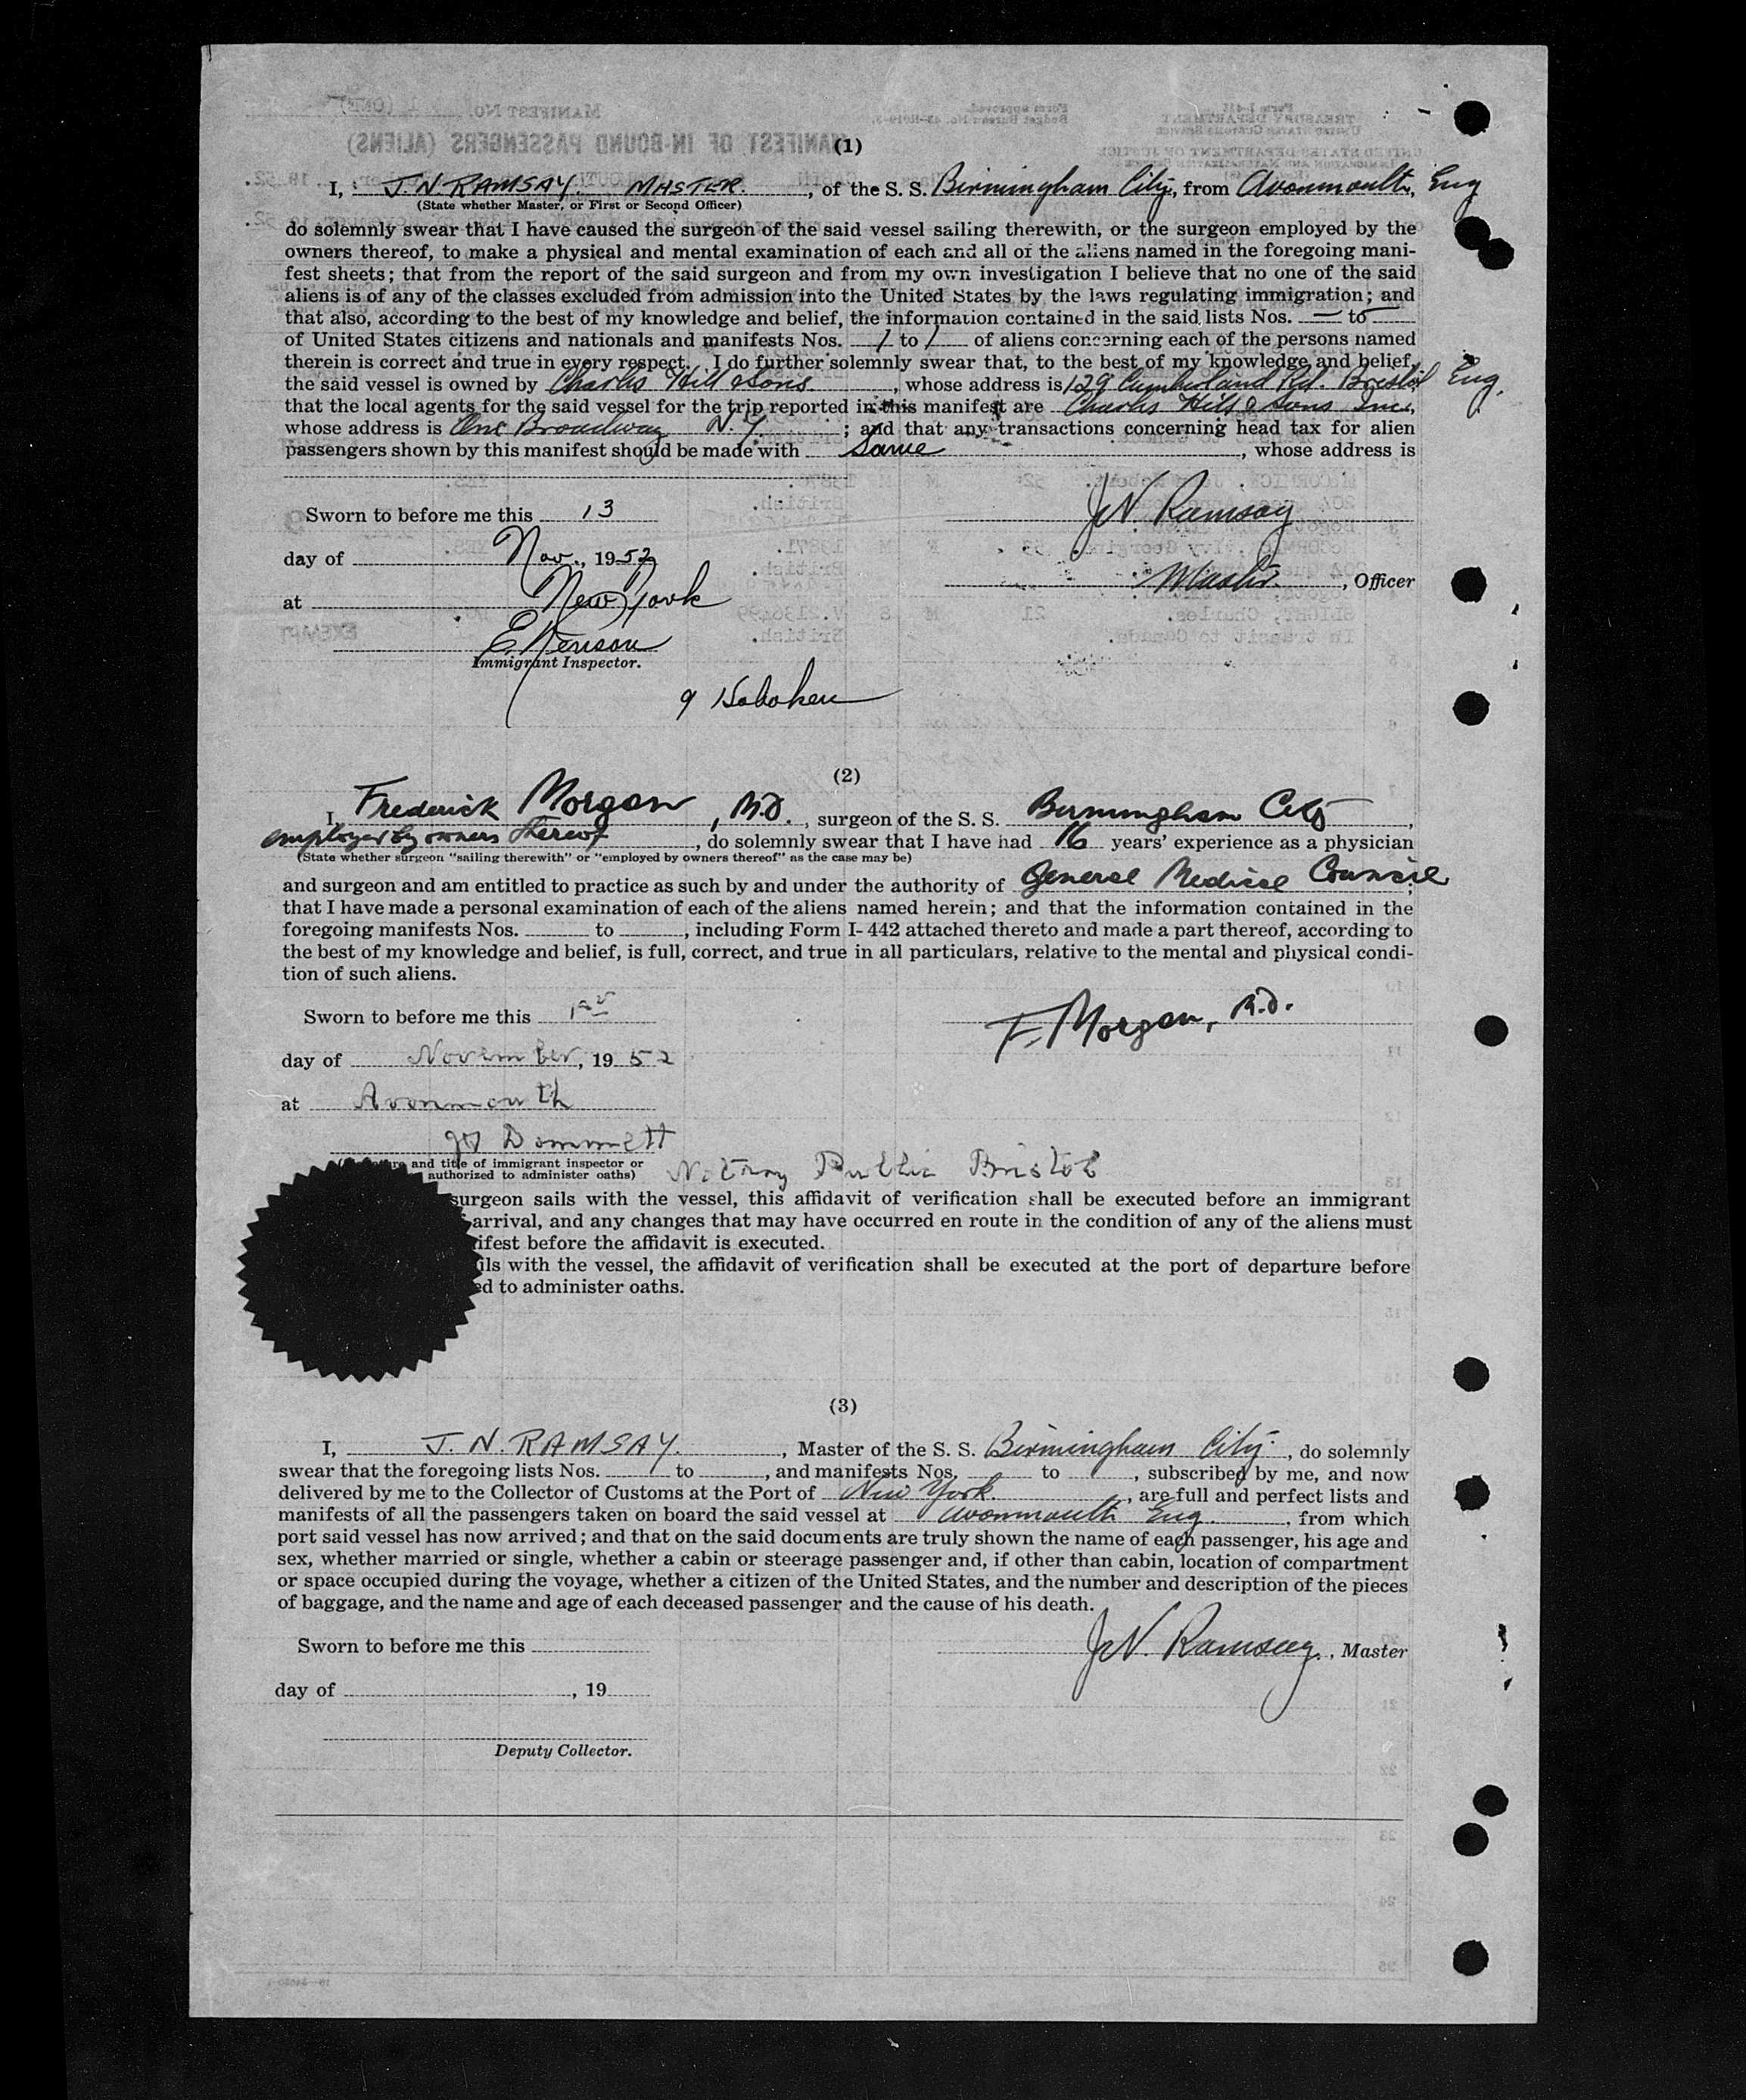 (1)
I, J. N. RAMSAY. MASTER. , of the S. S. Birmingham City, from Avonmouth, Eng
(State whether Master, or First or Second Officer)
do solemnly swear that I have caused the surgeon of the said vessel sailing therewith, or the surgeon employed by the
owners thereof, to make a physical and mental examination of each and all of the aliens named in the foregoing mani-
fest sheets; that from the report of the said surgeon and from my own investigation I believe that no one of the said
aliens is of any of the classes excluded from admission into the United States by the laws regulating immigration; and
that also, according to the best of my knowledge and belief, the information contained in the said lists Nos. — to
of United States citizens and nationals and manifests Nos. 1 to 1 of aliens concerning each of the persons named
therein is correct and true in every respect. I do further solemnly swear that, to the best of my knowledge and belief,
the said vessel is owned by Charles Hill & Sons. , whose address is 129 Cumberland Rd. Bristol Eng.
that the local agents for the said vessel for the trip reported in this manifest are Charles Hill & Sons Inc,
whose address is One Broadway N. Y. ; and that any transactions concerning head tax for alien
passengers shown by this manifest should be made with Same , whose address is
Sworn to before me this 13
J N. Ramsay
day of Nov., 1952
Master. , Officer
at New York
Immigrant Inspector.
9 Hoboken
(2)
I, Frederick Morgan , M.D. , surgeon of the S. S. Birmingham City ,
employed by owners thereof , do solemnly swear that I have had 16 years' experience as a physician
(State whether surgeon "sailing therewith" or "employed by owners thereof" as the case may be)
and surgeon and am entitled to practice as such by and under the authority of General Medical Council ;
that I have made a personal examination of each of the aliens named herein; and that the information contained in the
foregoing manifests Nos. to , including Form I-442 attached thereto and made a part thereof, according to
the best of my knowledge and belief, is full, correct, and true in all particulars, relative to the mental and physical condi-
tion of such aliens.
Sworn to before me this 1st
F. Morgan, M.D.
day of November, 1952
at Avonmouth
Dommett
and title of immigrant inspector or
authorized to administer oaths)
Notary Public Bristol
surgeon sails with the vessel, this affidavit of verification shall be executed before an immigrant
arrival, and any changes that may have occurred en route in the condition of any of the aliens must
ifest before the affidavit is executed.
ils with the vessel, the affidavit of verification shall be executed at the port of departure before
ed to administer oaths.
(3)
I, J. N. RAMSAY. , Master of the S. S. Birmingham City. , do solemnly
swear that the foregoing lists Nos. to , and manifests Nos. to , subscribed by me, and now
delivered by me to the Collector of Customs at the Port of New York. , are full and perfect lists and
manifests of all the passengers taken on board the said vessel at Avonmouth Eng. , from which
port said vessel has now arrived; and that on the said documents are truly shown the name of each passenger, his age and
sex, whether married or single, whether a cabin or steerage passenger and, if other than cabin, location of compartment
or space occupied during the voyage, whether a citizen of the United States, and the number and description of the pieces
of baggage, and the name and age of each deceased passenger and the cause of his death.
Sworn to before me this
J N. Ramsay. , Master
day of , 19
Deputy Collector.